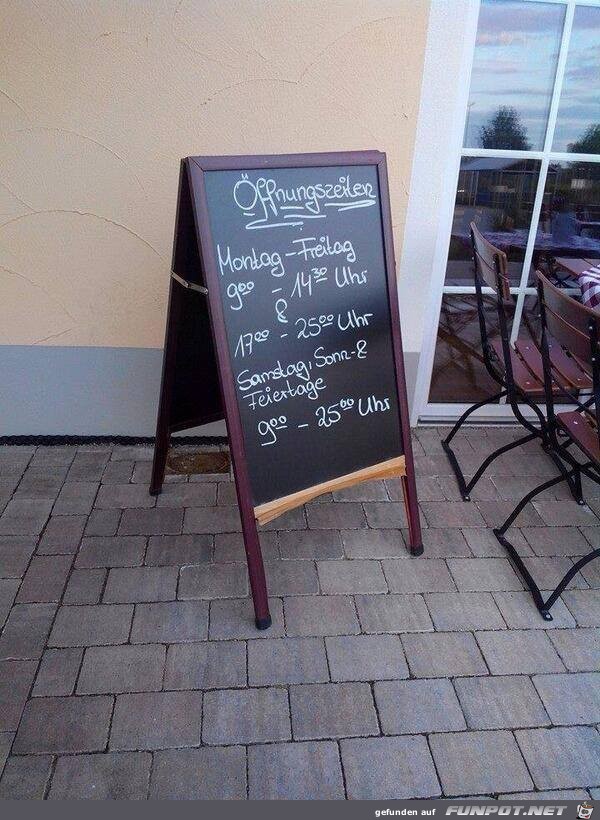 Öffnungszeiten
Montag-Freitag
9⁰⁰ - 14³⁰ Uhr
&
17⁰⁰ - 25⁰⁰ Uhr
Samstag, Sonn- &
Feiertage
9⁰⁰ - 25⁰⁰ Uhr
gefunden auf FUNPOT.NET